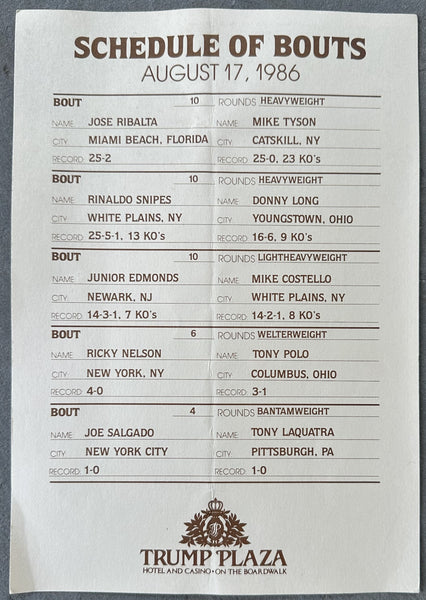 SCHEDULE OF BOUTS
AUGUST 17, 1986
BOUT 10 ROUNDS HEAVYWEIGHT
NAME JOSE RIBALTA NAME MIKE TYSON
CITY MIAMI BEACH, FLORIDA CITY CATSKILL, NY
RECORD 25-2 RECORD 25-0, 23 KO's
BOUT 10 ROUNDS HEAVYWEIGHT
NAME RINALDO SNIPES NAME DONNY LONG
CITY WHITE PLAINS, NY CITY YOUNGSTOWN, OHIO
RECORD 25-5-1, 13 KO's RECORD 16-6, 9 KO's
BOUT 10 ROUNDS LIGHTHEAVYWEIGHT
NAME JUNIOR EDMONDS NAME MIKE COSTELLO
CITY NEWARK, NJ CITY WHITE PLAINS, NY
RECORD 14-3-1, 7 KO's RECORD 14-2-1, 8 KO's
BOUT 6 ROUNDS WELTERWEIGHT
NAME RICKY NELSON NAME TONY POLO
CITY NEW YORK, NY CITY COLUMBUS, OHIO
RECORD 4-0 RECORD 3-1
BOUT 4 ROUNDS BANTAMWEIGHT
NAME JOE SALGADO NAME TONY LAQUATRA
CITY NEW YORK CITY CITY PITTSBURGH, PA
RECORD 1-0 RECORD 1-0
TRUMP PLAZA
HOTEL AND CASINO • ON THE BOARDWALK